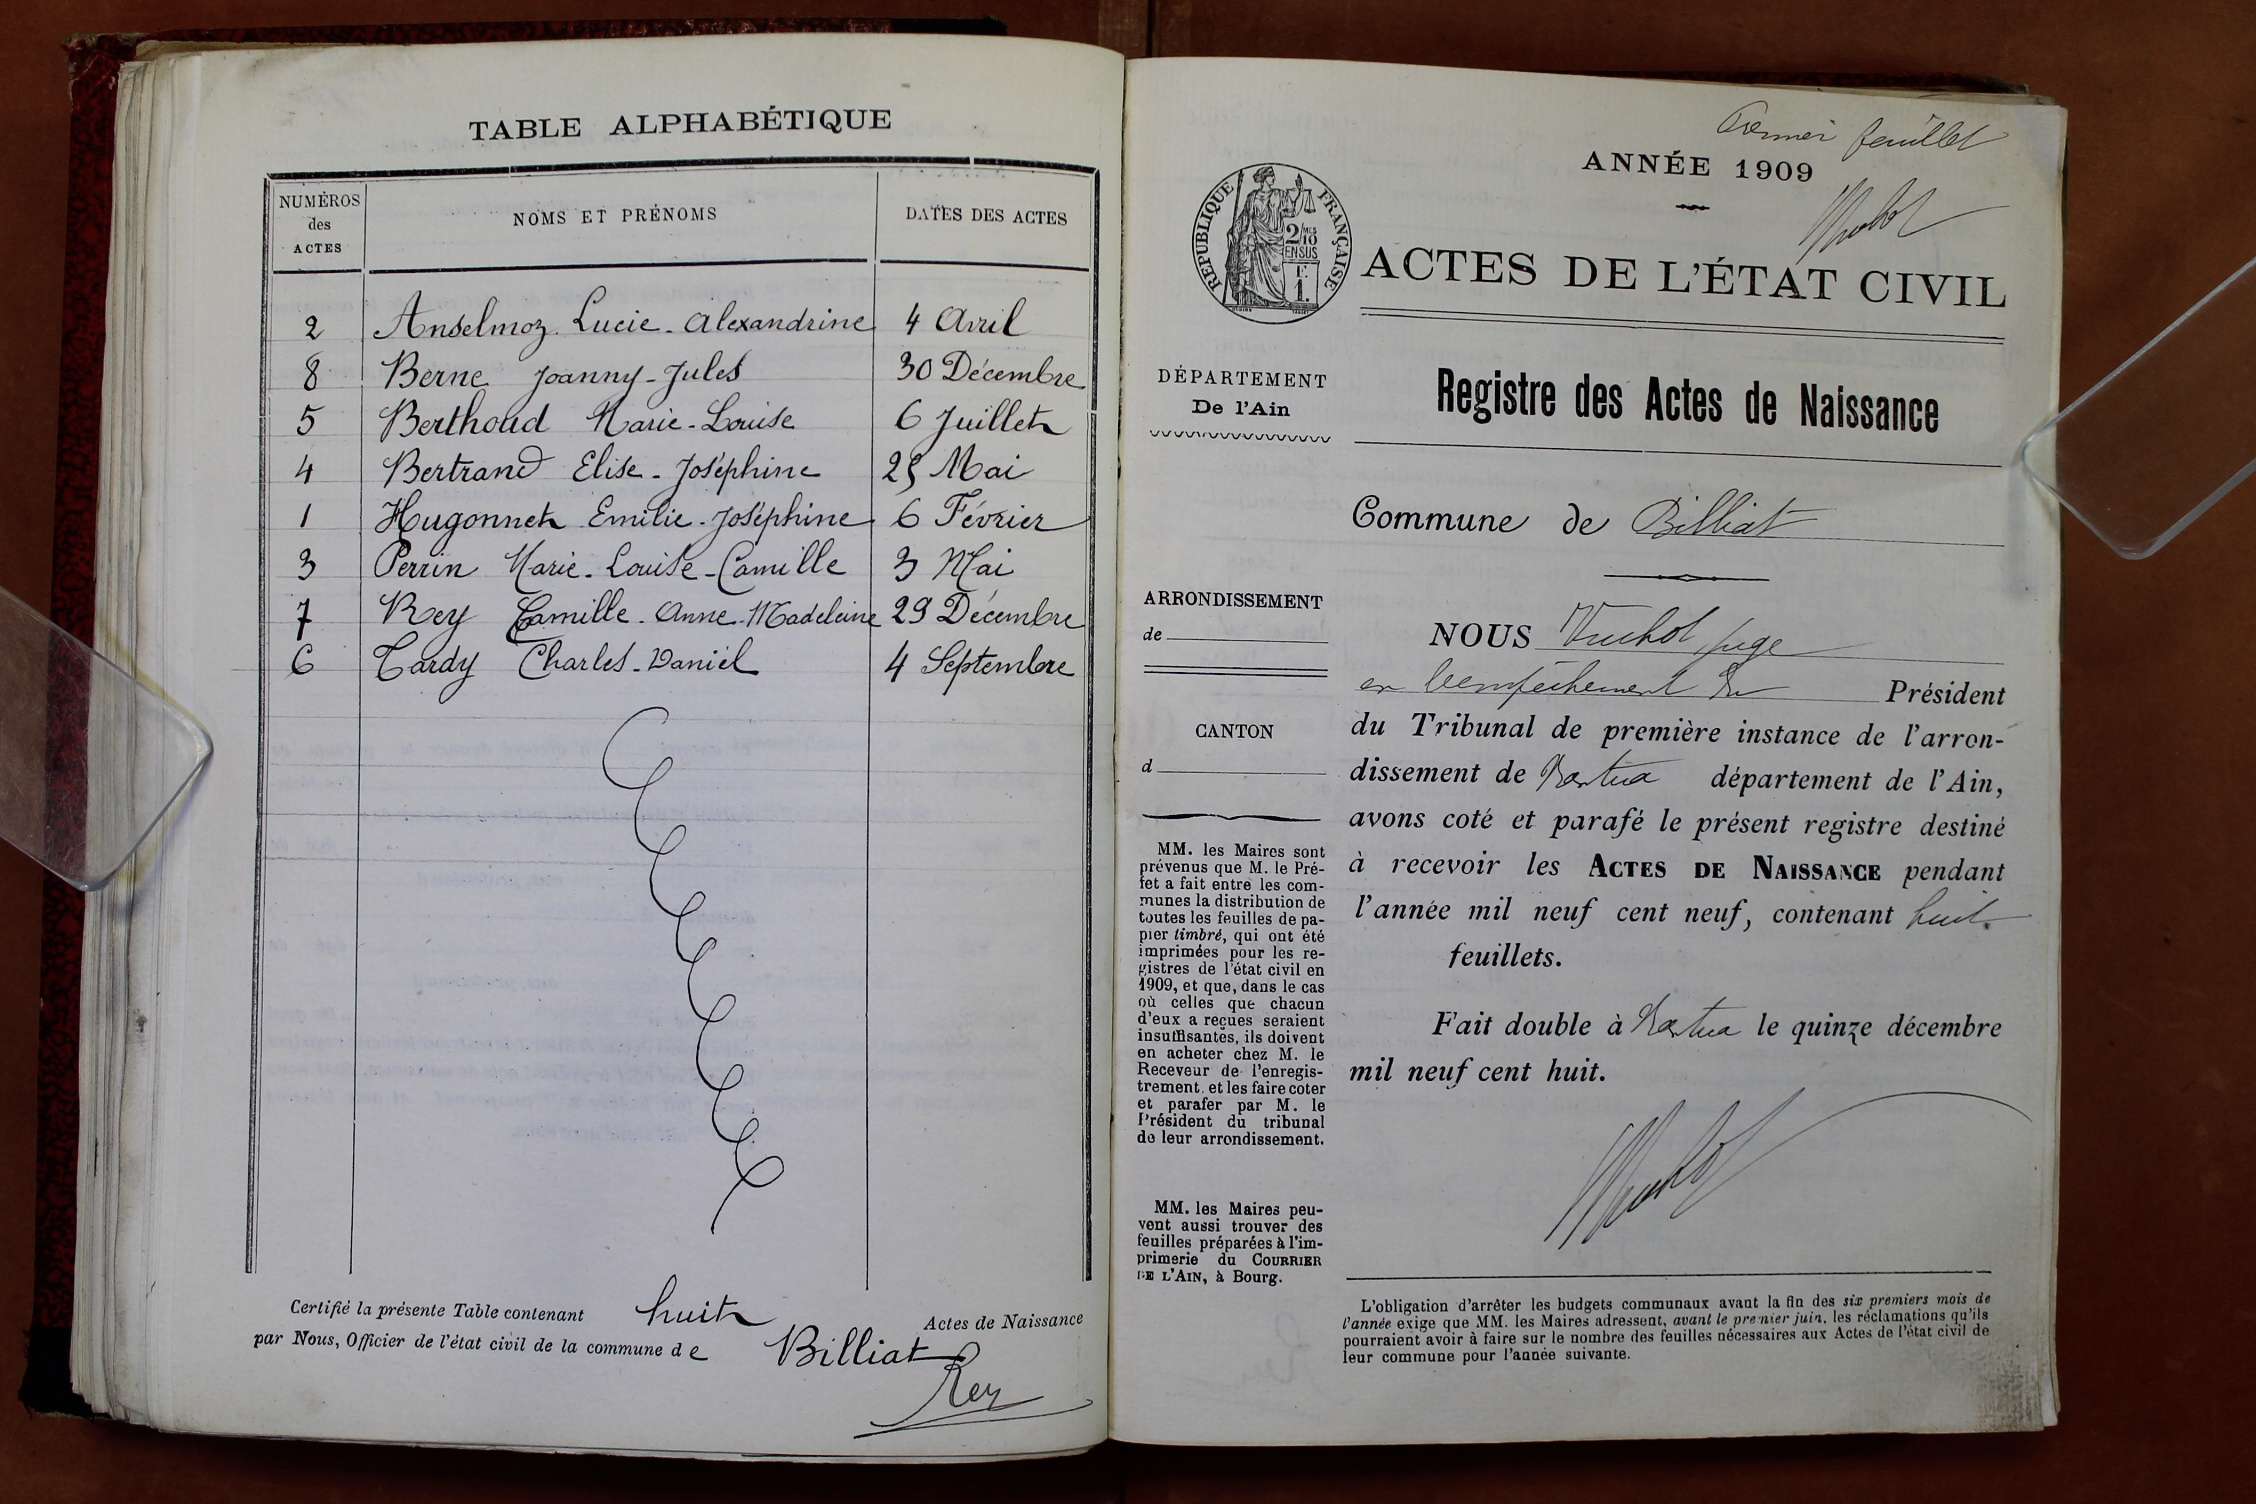 TABLE ALPHABÉTIQUE
NUMÉROS des ACTES NOMS ET PRÉNOMS DATES DES ACTES
2 Anselmoz Lucie-Alexandrine 4 Avril
8 Berne Joanny-Jules 30 Décembre
5 Berthoud Marie-Louise 6 Juillet
4 Bertrand Elise-Joséphine 25 Mai
1 Hugonnet Emilie-Joséphine 6 Février
3 Perrin Marie-Louise-Camille 3 Mai
7 Rey Camille-Anne-Madeleine 29 Décembre
6 Tardy Charles-Daniel 4 Septembre
Certifié la présente Table contenant huit Actes de Naissance
par Nous, Officier de l'état civil de la commune de Billiat
Rey
Premier feuillet
ANNÉE 1909
RÉPUBLIQUE FRANÇAISE
2/10 MES
EN SUS
F.
1.
ACTES DE L'ÉTAT CIVIL
DÉPARTEMENT
De l'Ain
Registre des Actes de Naissance
Commune de Billiat
ARRONDISSEMENT
de
CANTON
d
MM. les Maires sont
prévenus que M. le Pré-
fet a fait entre les com-
munes la distribution de
toutes les feuilles de pa-
pier timbré, qui ont été
imprimées pour les re-
gistres de l'état civil en
1909, et que, dans le cas
où celles que chacun
d'eux a reçues seraient
insuffisantes, ils doivent
en acheter chez M. le
Receveur de l'enregis-
trement et les faire coter
et parafer par M. le
Président du tribunal
de leur arrondissement.
MM. les Maires peu-
vent aussi trouver des
feuilles préparées à l'im-
primerie du COURRIER
DE L'AIN, à Bourg.
NOUS juge
en l'empêchement du Président
du Tribunal de première instance de l'arron-
dissement de Nantua département de l'Ain,
avons coté et parafé le présent registre destiné
à recevoir les ACTES DE NAISSANCE pendant
l'année mil neuf cent neuf, contenant huit
feuillets.
Fait double à Nantua le quinze décembre
mil neuf cent huit.
L'obligation d'arrêter les budgets communaux avant la fin des six premiers mois de
l'année exige que MM. les Maires adressent, avant le premier juin, les réclamations qu'ils
pourraient avoir à faire sur le nombre des feuilles nécessaires aux Actes de l'état civil de
leur commune pour l'année suivante.